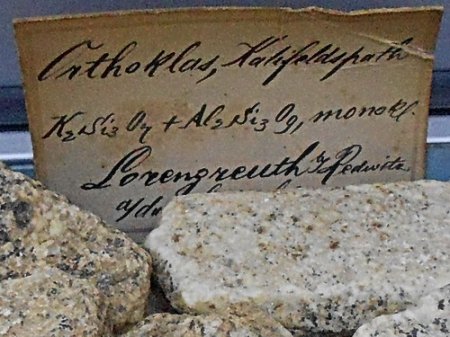 Orthoklas, Kalifeldspath
K₂Si₃O₇ + Al₂Si₃O₉, monokl.
Lorengreuth b/ Redwitz